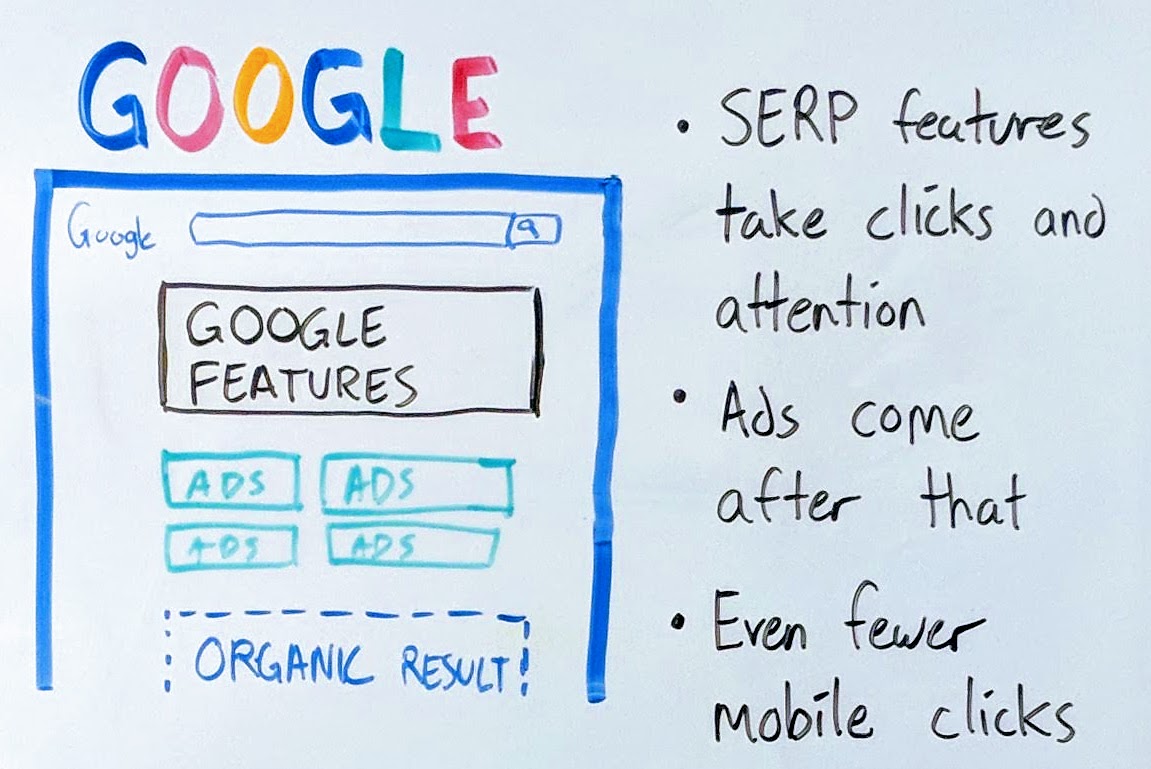 GOOGLE
Google
GOOGLE
FEATURES
ADS ADS
ADS ADS
ORGANIC RESULT
• SERP features
take clicks and
attention
• Ads come
after that
• Even fewer
mobile clicks